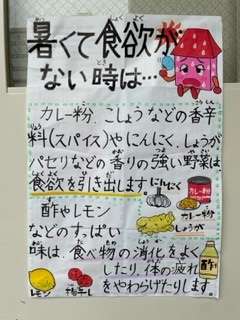 暑くて食欲が
ない時は…
カレー粉、こしょうなどの香辛
料(スパイス)やにんにく、しょうが
パセリなどの香りの強い野菜は
食欲を引き出します。
にんにく
カレー粉
カレー粉
しょうが
酢やレモン
などのすっぱい
味は、食べ物の消化をよく
したり、体の疲れ
をやわらげたりします。
酢
レモン
梅干し